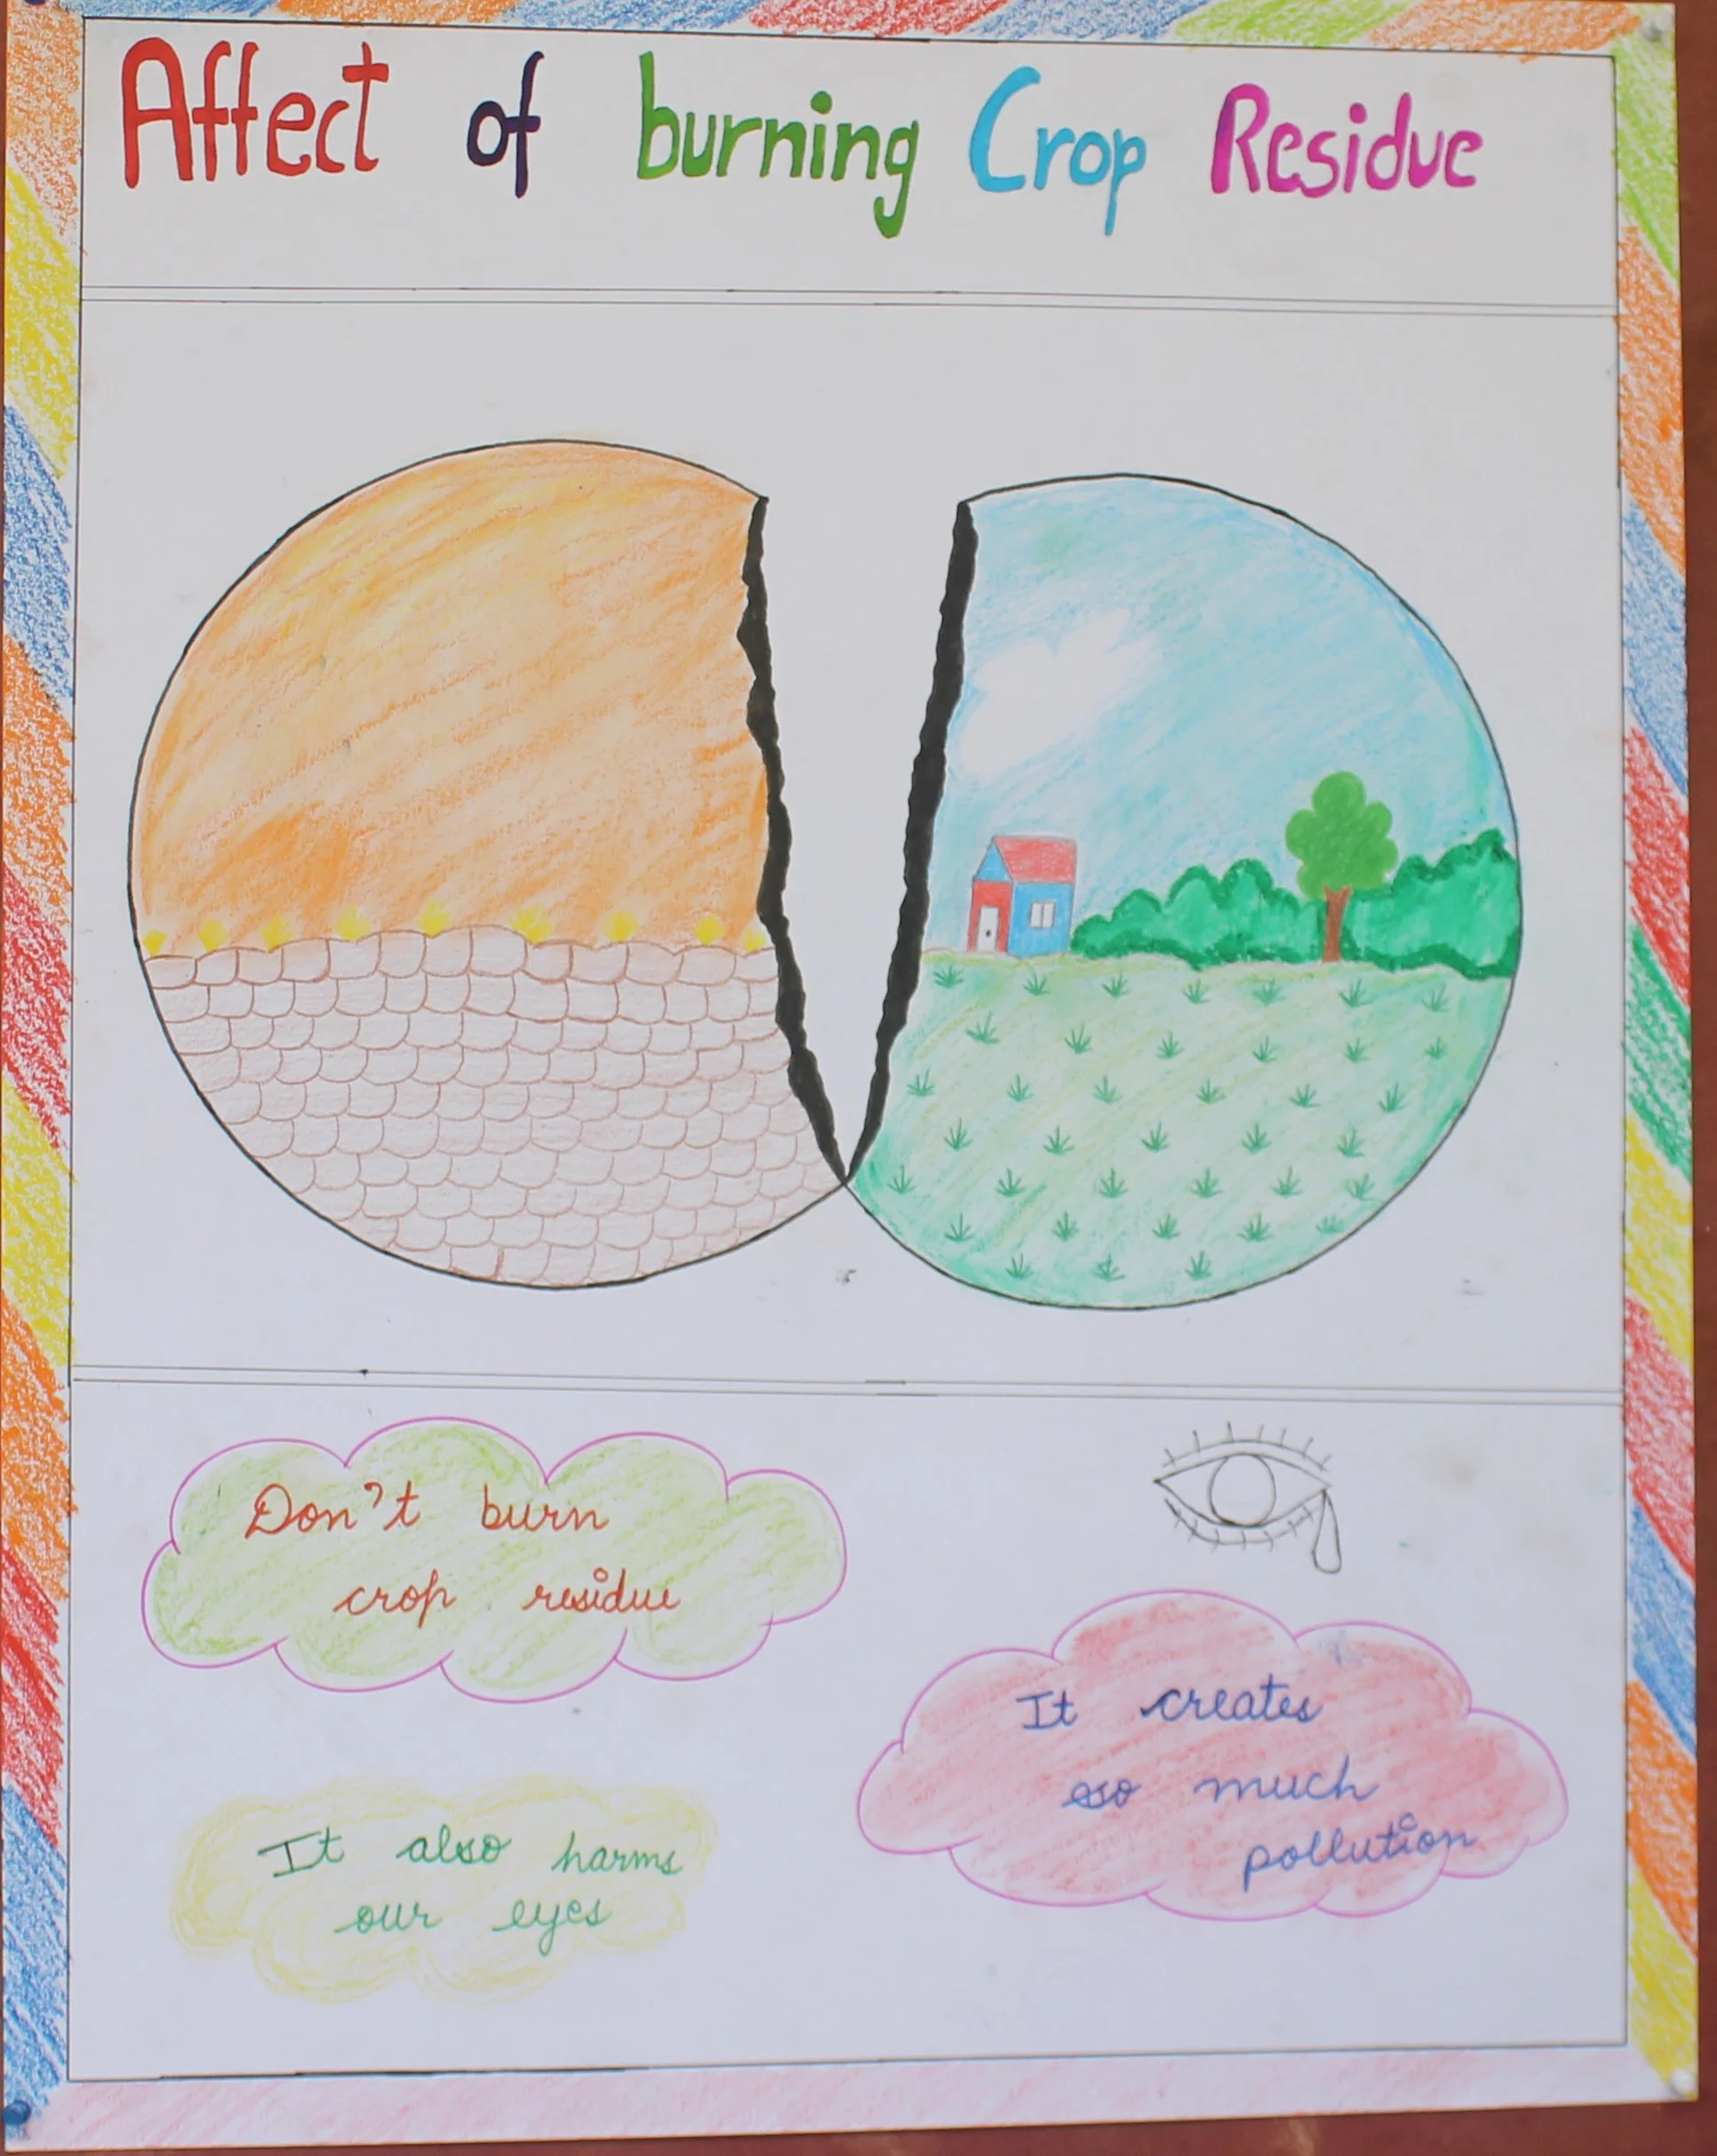 Affect of burning Crop Residue
Don't burn
crop residue
It creates
so much
pollution
It also harms
our eyes